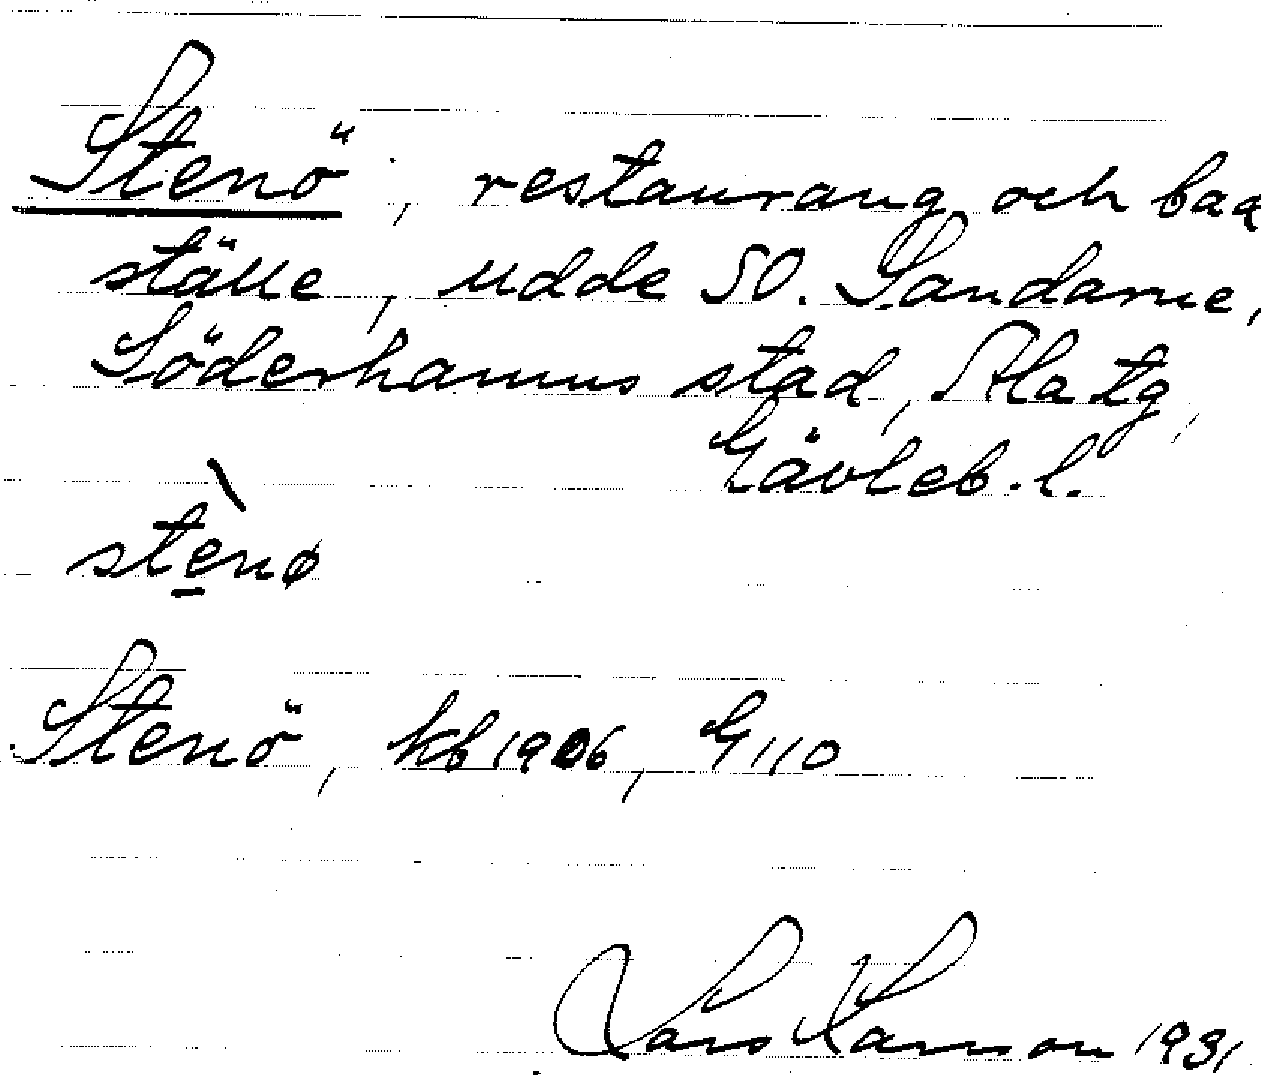 Stenö, restaurang och bad
ställe, udde SO. Sandarne,
Söderhamns stad, Ala tg,
Gävleb. l.
stènø
Stenö, kb 1906, G 110
Lars Hanson 1931